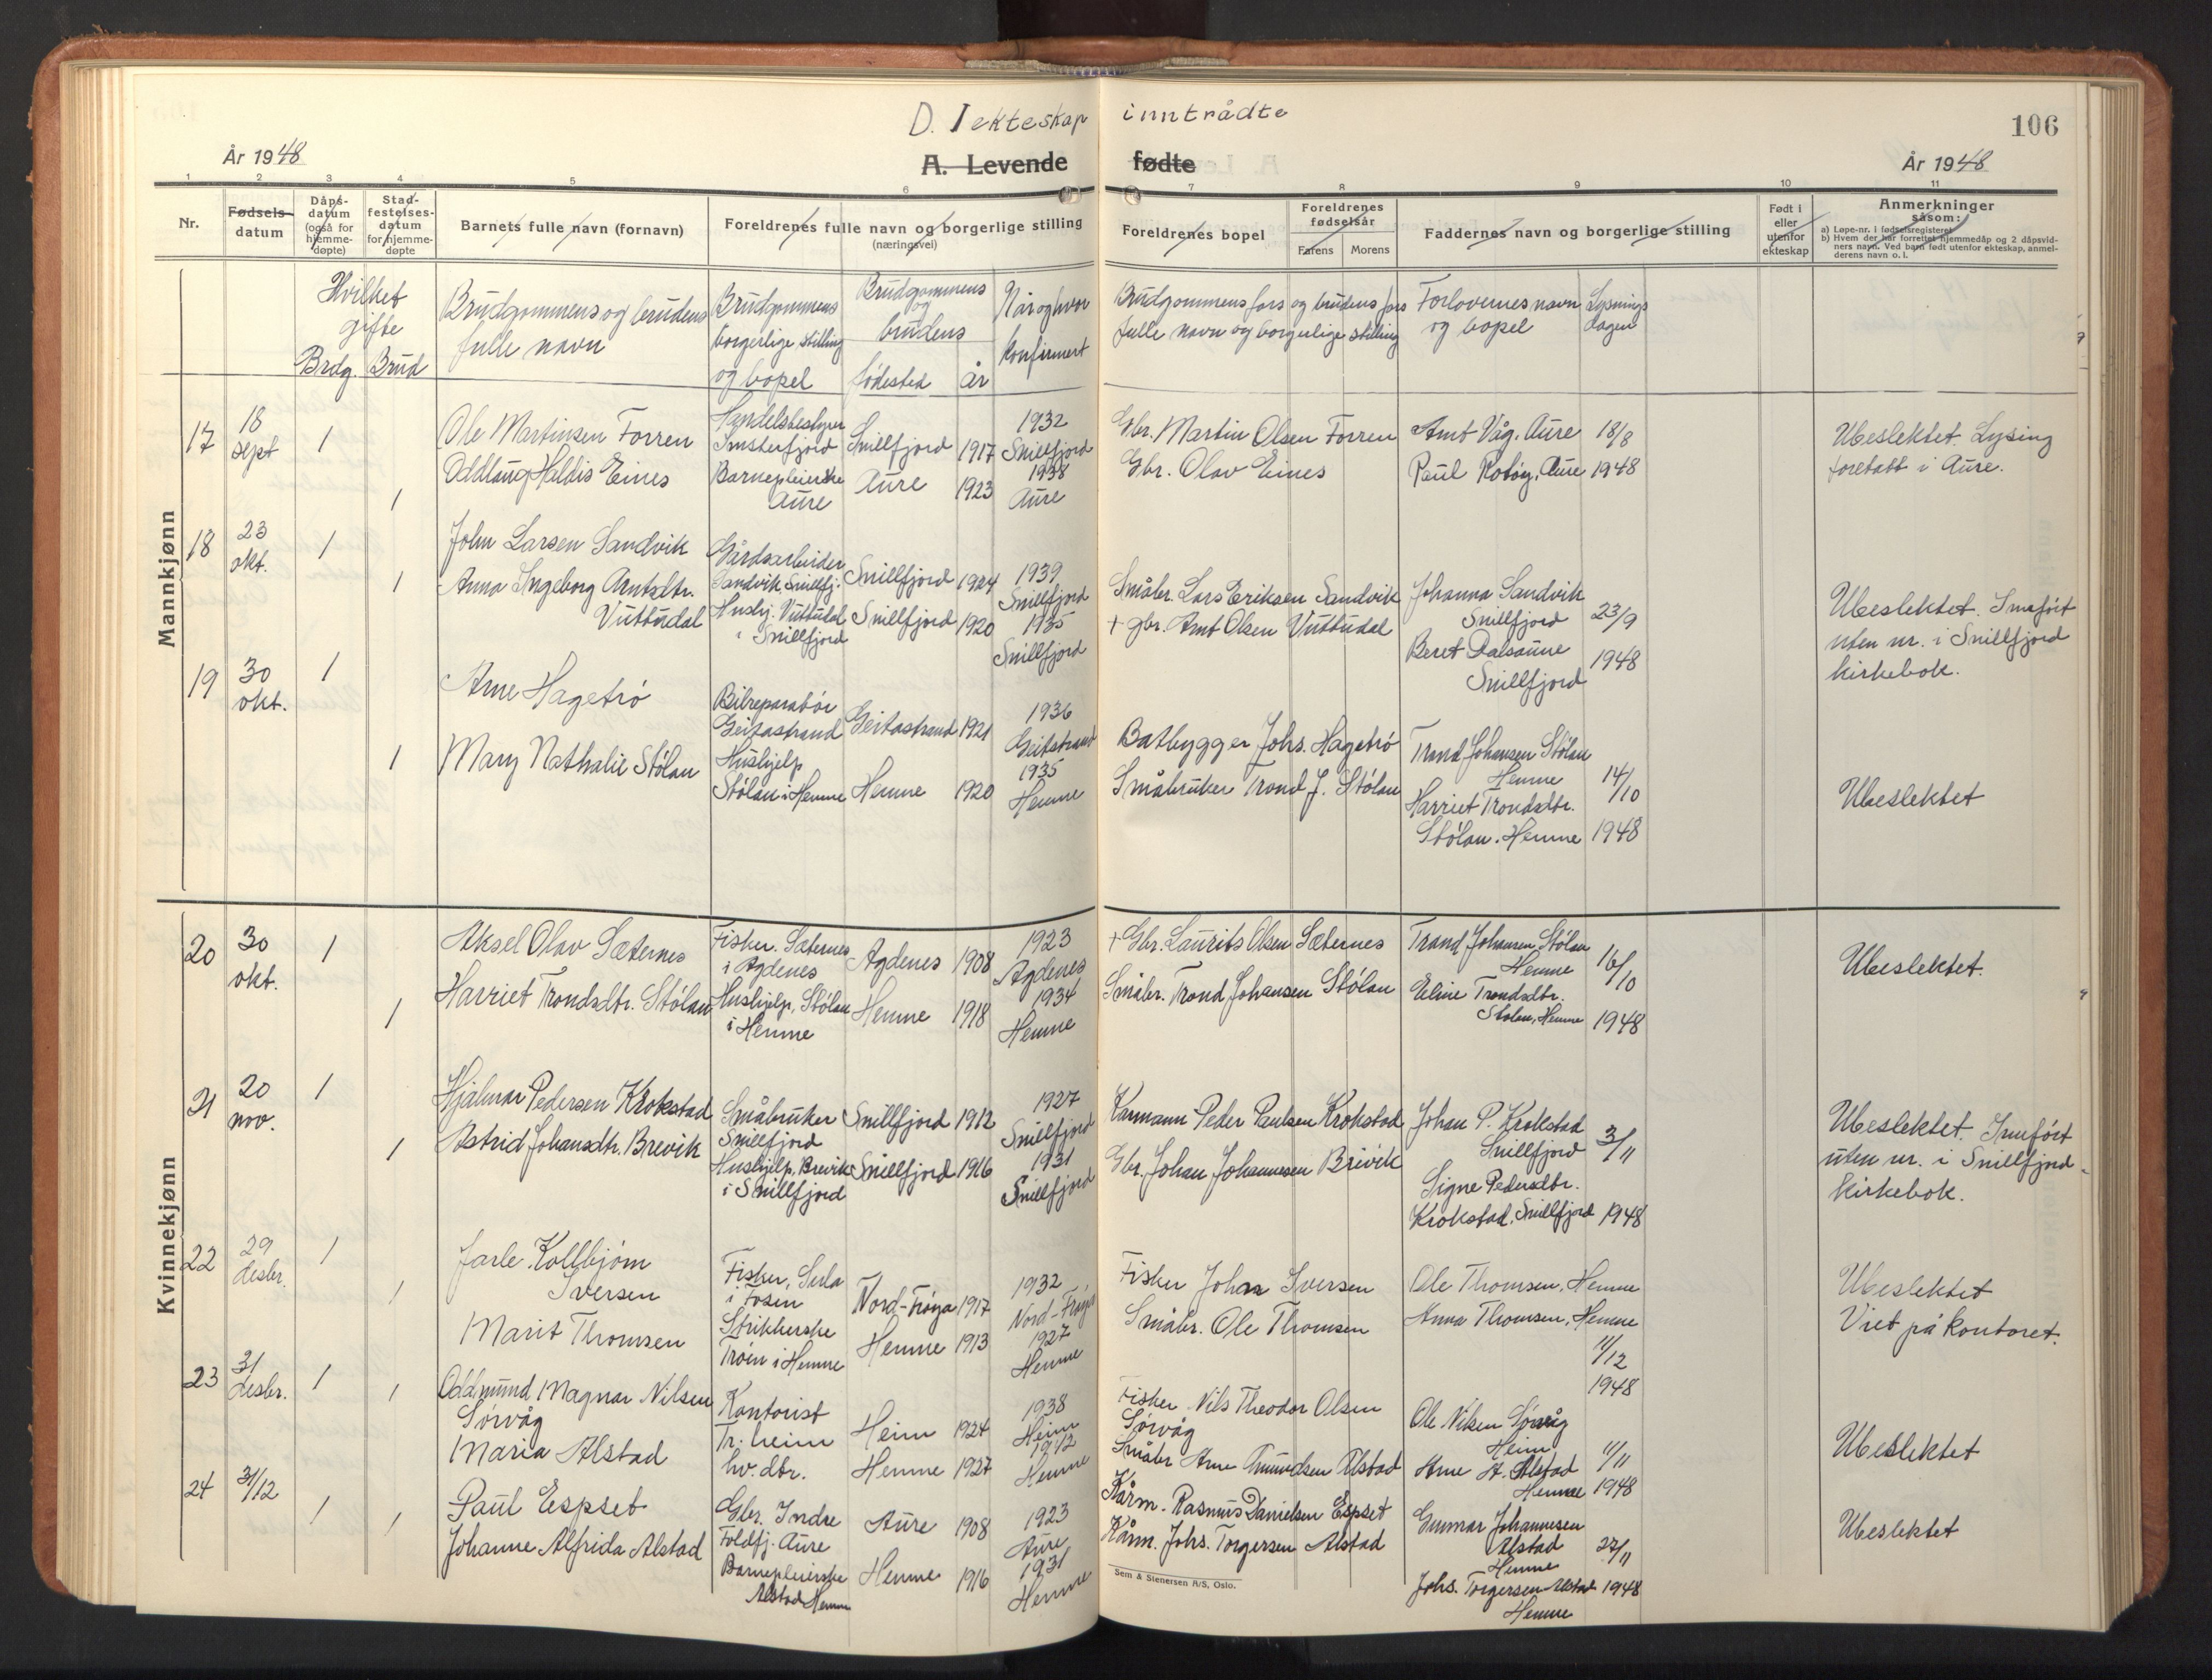 D. I ekteskap inntrådte
106
År 1948
A. Levende fødte
År 1948
1 2 3 4 5 6 7 8 9 10 11
Nr.
Fødsels-
datum
Dåps-
datum
(også for
hjemme-
døpte)
Stad-
festelses-
datum
for hjemme-
døpte
Barnets fulle navn (fornavn)
Foreldrenes fulle navn og borgerlige stilling
(næringsvei)
Foreldrenes bopel
Foreldrenes
fødselsår
Farens Morens
Faddernes navn og borgerlige stilling
Født i
eller
utenfor
ekteskap
Anmerkninger
såsom:
a) Løpe-nr. i fødselsregisteret
b) Hvem der har forrettet hjemmedåp og 2 dåpsvid-
ners navn. Ved barn født utenfor ekteskap, anmel-
derens navn o. l.
Hvilket
gifte
Brdg. Brud
Brudgommens og brudens
fulle navn
Brudgommens
borgerlige stilling
og bopel
Brudgommens
og
brudens
fødested år
Når og hvor
konfirmert
Brudgommens fars og brudens fars
fulle navn og borgerlige stilling
Forlovernes navn
og bopel
Lysnings
dagen
Mannkjønn
17
18
sept
1
1
Ole Martinsen Forren
Oddlaug Haldis Eines
Handelsbestyrer
Imsterfjord
Barnepleierske
Aure
Snillfjord 1917
Aure 1923
1932
Snillfjord
1938
Aure
Gbr. Martin Olsen Forren
Gbr. Olav Eines
Arnt Våg, Aure
Paul Rotøy, Aure
18/8
1948
Ubeslektet. Lysing
foretatt i Aure.
18
23
okt.
1
1
John Larsen Sandvik
Anna Ingeborg Arntsdtr.
Vuttudal
Gårdsarbeider
Sandvik, Snillfj.
Hushj. Vuttudal
i Snillfjord
Snillfjord 1924
Snillfjord 1920
1939
Snillfjord
1935
Snillfjord
Småbr. Lars Eriksen Sandvik
+ gbr. Arnt Olsen Vuttudal
Johanna Sandvik
Snillfjord
Beret Dalsaune
Snillfjord
23/9
1948
Ubeslektet. Innført
uten nr. i Snillfjord
kirkebok.
19
30
okt.
1
1
Arne Hagetrø
Mary Nathalie Stølan
Bilreparatør
Geitastrand
Hushjelp
Stølan i Hemne
Geitastrand 1921
Hemne 1920
1936
Geitstrand
1935
Hemne
Båtbygger Johs. Hagetrø
Småbruker Trond J. Stølan
Trond Johansen Stølan
Hemne
Harriet Trondsdtr.
Stølan, Hemne
14/10
1948
Ubeslektet
Kvinnekjønn
20
30
okt.
1
1
Aksel Olav Sæternes
Harriet Trondsdtr. Stølan
Fisker. Sæternes
i Agdenes
Hushjelp, Stølan
i Hemne
Agdenes 1908
Hemne 1918
1923
Agdenes
1934
Hemne
+ Gbr. Laurits Olsen Sæternes
Småbr. Trond Johansen Stølan
Trond Johansen Stølan
Hemne
Eline Trondsdtr.
Stølan, Hemne
16/10
1948
Ubeslektet.
21
20
nov.
1
1
Hjalmar Pedersen Krokstad
Astrid Johansdtr. Brevik
Småbruker
Snillfjord
Hushjelp, Brevik
i Snillfjord
Snillfjord 1912
Snillfjord 1916
1927
Snillfjord
1931
Snillfjord
Kårmann Peder Paulsen Krokstad
Gbr. Johan Johannesen Brevik
Johan P. Krokstad
Snillfjord
Signe Pedersdtr.
Krokstad, Snillfjord
3/11
1948
Ubeslektet. Innført
uten nr. i Snillfjord
kirkebok.
22
29
desbr.
1
1
Jarle Kollbjørn
Iversen
Marit Thomsen
Fisker, Sula
i Fosen
Strikkerske
Trøen i Hemne
Nord-Frøya 1917
Hemne 1913
1932
Nord-Frøya
1927
Hemne
Fisker Johan Iversen
Småbr. Ole Thomsen
Ole Thomsen, Hemne
Anna Thomsen, Hemne
11/12
1948
Ubeslektet
Viet på kontoret.
23
31
desbr.
1
1
Oddmund Magnar Nilsen
Sørvåg
Maria Alstad
Kontorist
Tr. heim
hv. dtr.
Heim 1924
Hemne 1927
1938
Heim
1942
Hemne
Fisker Nils Theodor Olsen
Sørvåg
Småbr Arne Amundsen Alstad
Ole Nilsen Sørvåg
Heim
Arne A. Alstad
Hemne
11/11
1948
Ubeslektet
24
31/12
1
1
Paul Espset
Johanne Alfrida Alstad
Gbr. Indre
Foldfj. Aure
Barnepleierske
Alstad Hemne
Aure 1908
Hemne 1916
1923
Aure
1931
Hemne
Kårm. Rasmus Danielsen Espset
Kårm. Johs. Torgersen Alstad
Gunnar Johannesen
Alstad
Hemne
Johs. Torgersen Alstad
Hemne
27/11
1948
Ubeslektet
Sem & Stenersen A/S, Oslo.